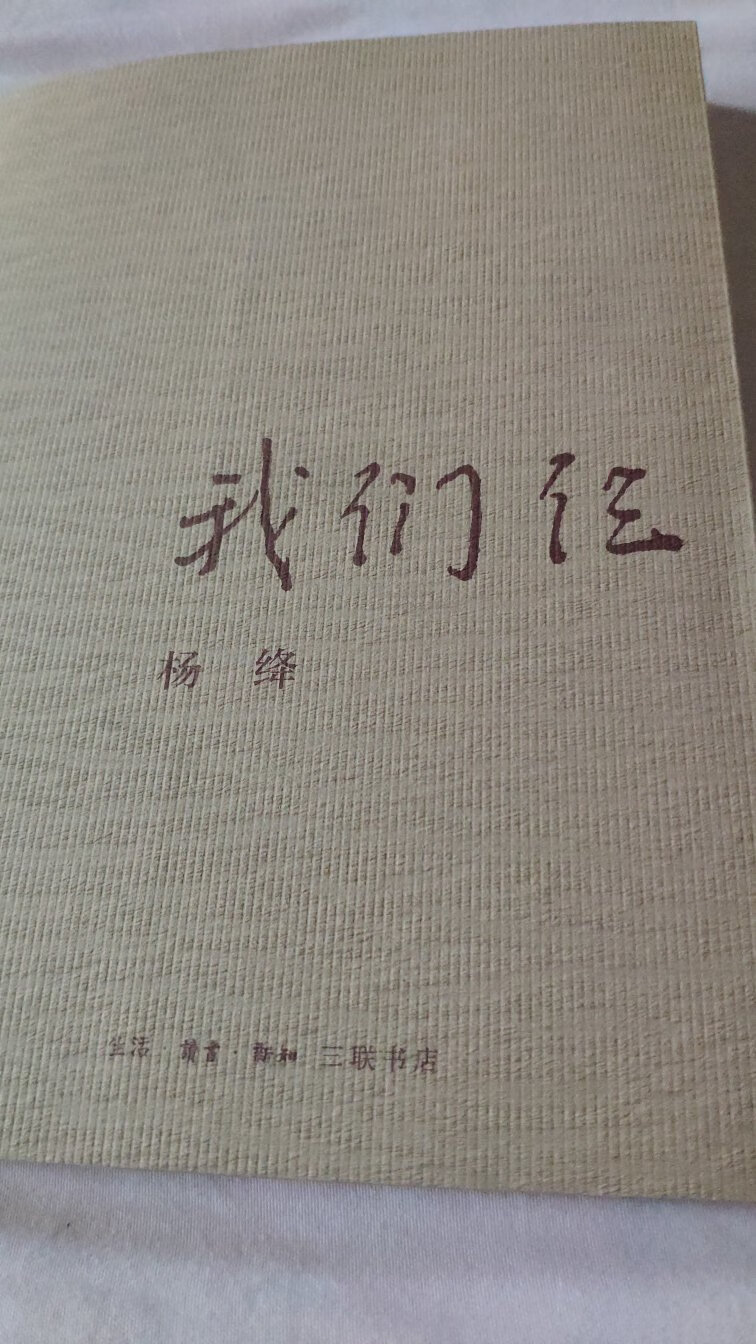 我们仨
杨绛
生活·讀書·新知 三联书店